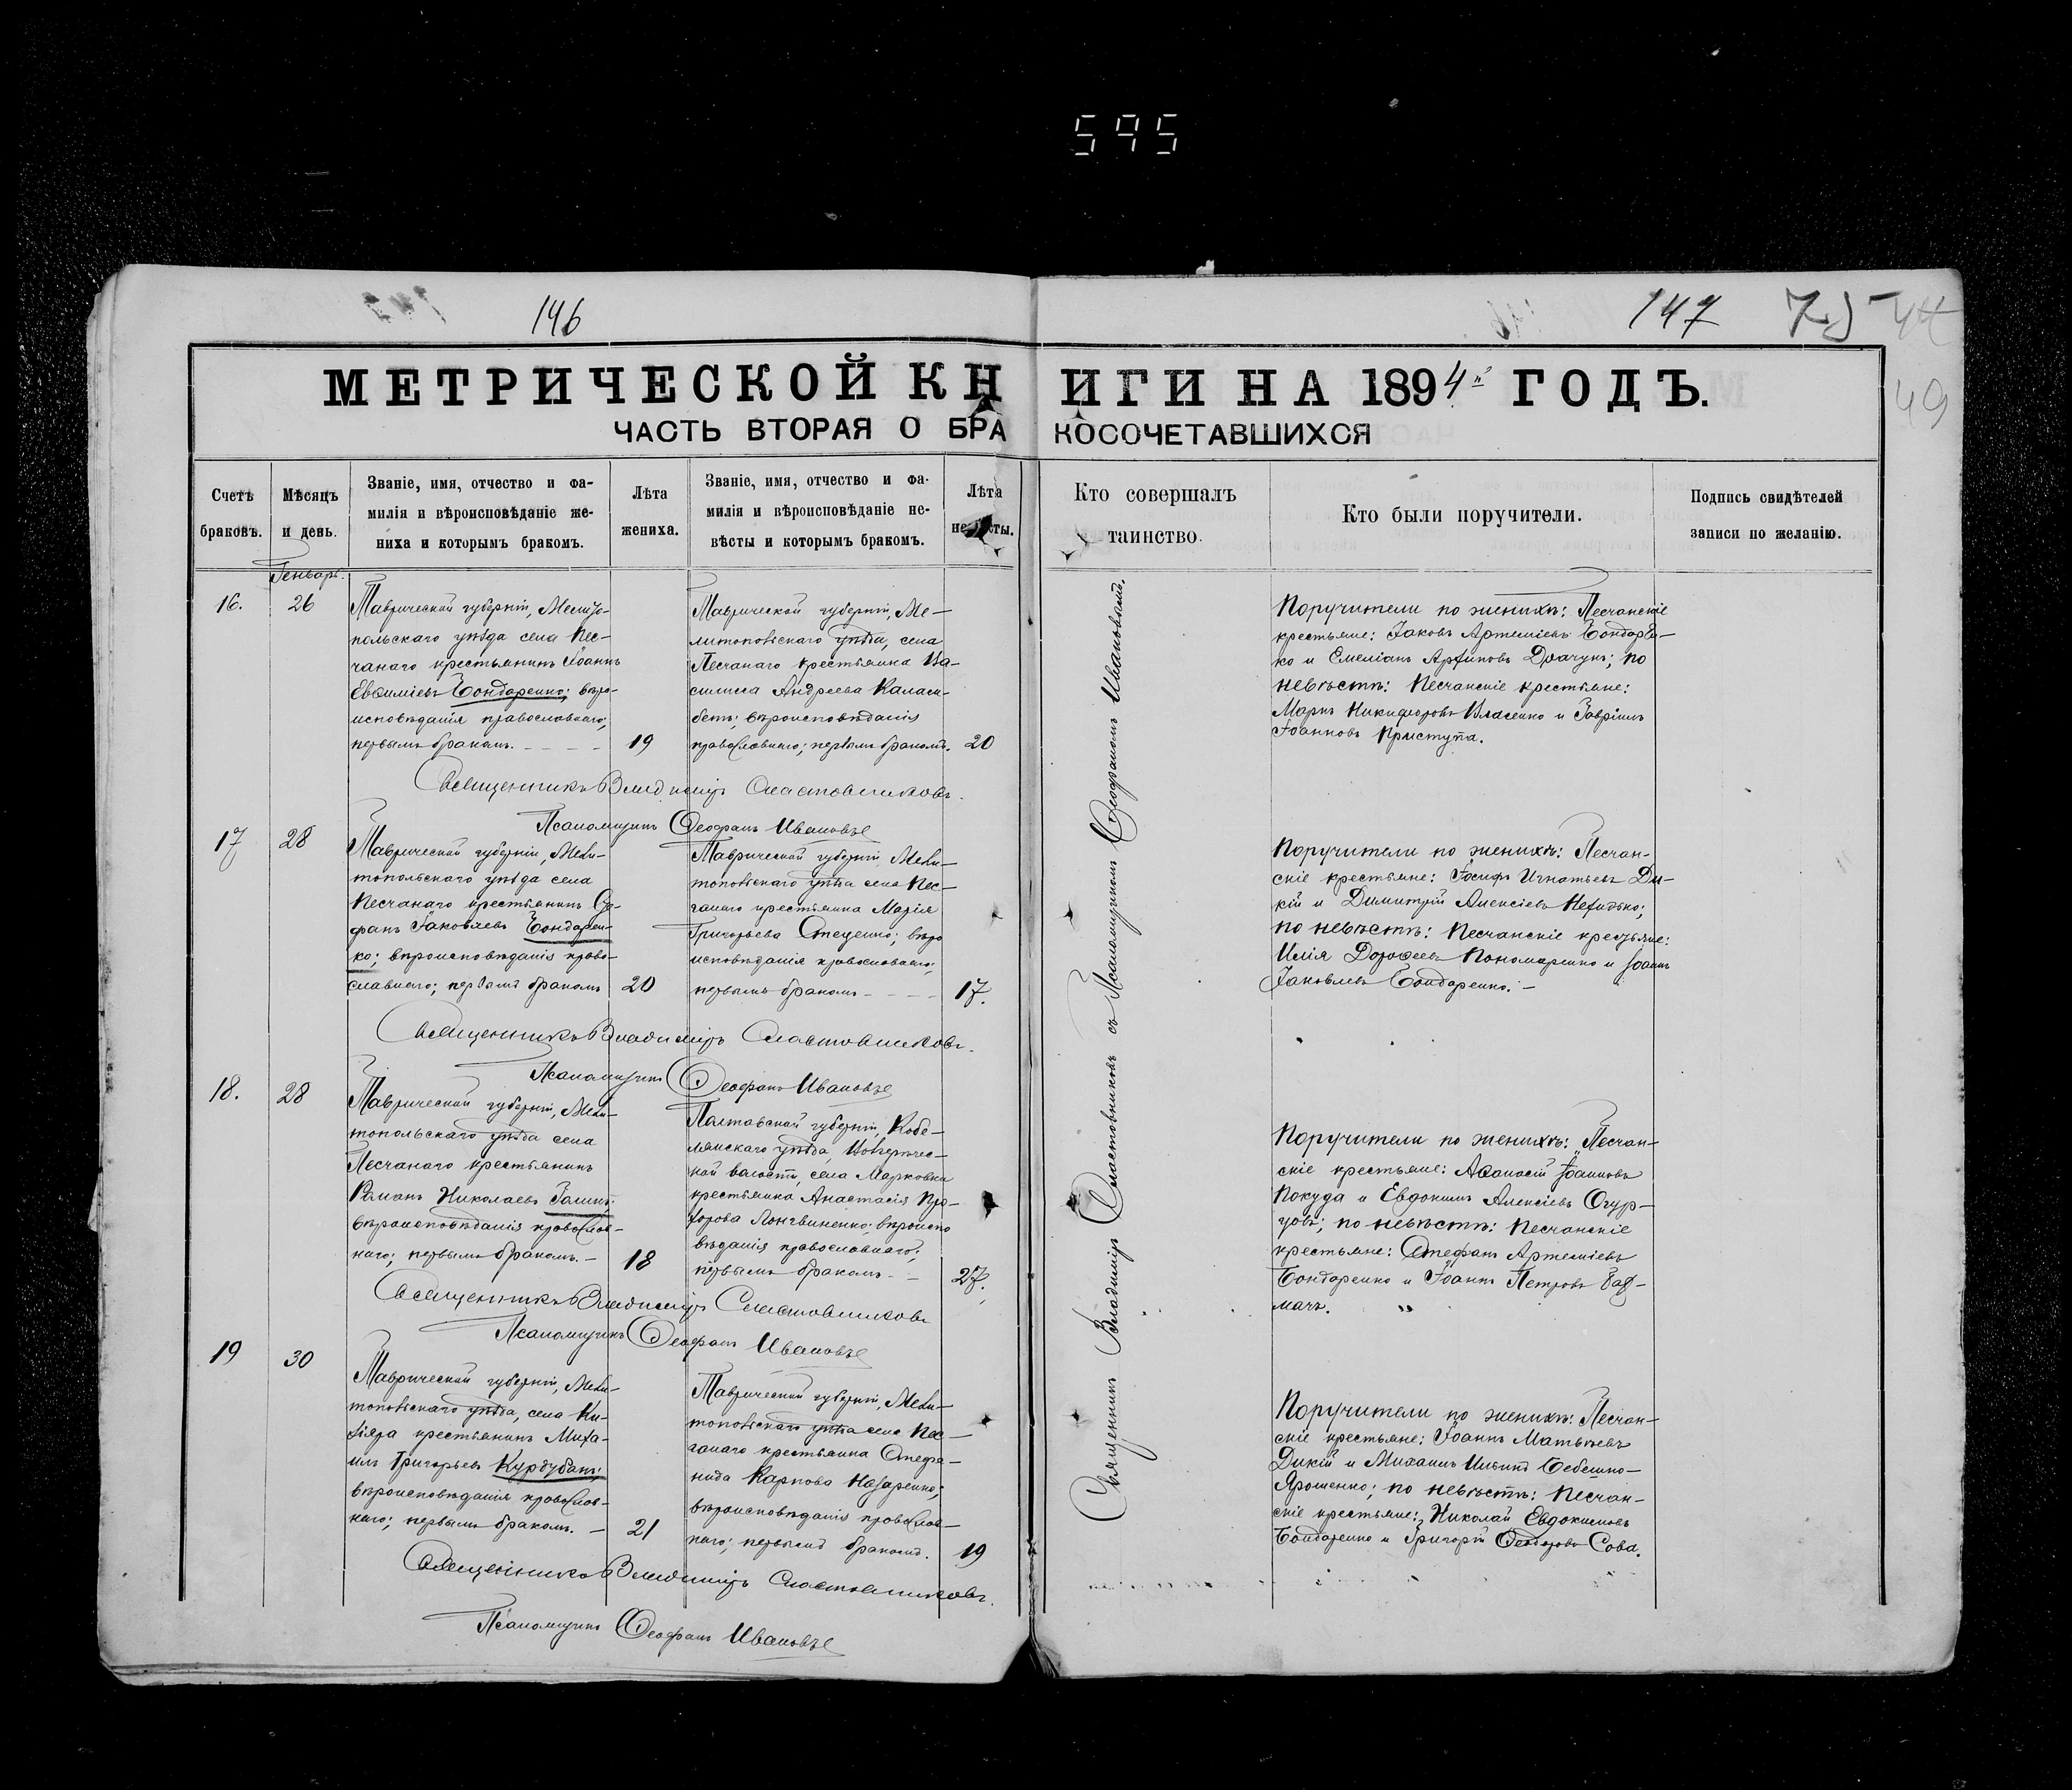 595
146
147
49
МЕТРИЧЕСКОЙ КНИГИ НА 1894й ГОДЪ.
ЧАСТЬ ВТОРАЯ О БРАКОСОЧЕТАВШИХСЯ
Счетъ браковъ.
Мѣсяцъ и день.
Званіе, имя, отчество и фа-
милія и вѣроисповѣданіе же-
ниха и которымъ бракомъ.
Лѣта
жениха.
Званіе, имя, отчество и фа-
милія и вѣроисповѣданіе не-
вѣсты и которымъ бракомъ.
Лѣта
Кто совершалъ
таинство.
Кто были поручители.
Подпись свидѣтелей
записи по желанію.
Генварь.
16.
26
Таврической губерніи, Мелито-
польскаго уѣзда села Пес-
чанаго крестьянинъ Іоаннъ
Евѳиміевъ Бондаренко; вѣро-
исповѣданія православнаго;
первымъ бракомъ.
19
Таврической губерніи, Ме-
литопольскаго уѣзда, села
Песчанаго крестьянка Ва-
силисса Андреева Каласи-
бетъ; вѣроисповѣданія
православнаго; первымъ бракомъ.
20
Поручители по женихѣ: Песчанскіе
крестьяне: Іаковъ Артеміевъ Бондарен-
ко и Емеліанъ Архиповъ Драчунъ; по
невѣстѣ: Песчанскіе крестьяне:
Маркъ Никифоровъ Власенко и Гавріилъ
Іоанновъ Приступа.
Священникъ Владиміръ Сластовниковъ.
Псаломщикъ Ѳеофанъ Ивановъ
17
28
Таврической губерніи, Мели-
топольскаго уѣзда села
Песчанаго крестьянинъ Сте-
фанъ Іаковлевъ Бондарен-
ко; вѣроисповѣданія право-
славнаго; первымъ бракомъ
20
Таврической губерніи Мели-
топольскаго уѣзда села Пес-
чанаго крестьянка Марія
Григорьева Стеценко; вѣро
исповѣданія православнаго;
первымъ бракомъ
17.
Поручители по женихѣ: Песчан-
скіе крестьяне: Іосифъ Игнатьевъ Ди-
кій и Димитрій Алексіевъ Нехидько;
по невѣстѣ: Песчанскіе крестьяне:
Илія Дороѳеевъ Пономаренко и Іоаннъ
Іаковлевъ Бондаренко.
Священникъ Владиміръ Сластовниковъ.
Псаломщикъ Ѳеофанъ Ивановъ
18.
28
Таврической губерніи, Мели-
топольскаго уѣзда села
Песчанаго крестьянинъ
Романъ Николаевъ
вѣроисповѣданія православ-
наго; первымъ бракомъ.
18
Полтавской губерніи, Кобе-
лякскаго уѣзда,
волости, села Марковки
крестьянка Анастасія Про-
хорова Лонгвиненко; вѣроиспо
вѣданія православнаго;
первымъ бракомъ
27.
Поручители по женихѣ: Песчан-
скіе крестьяне: Аѳанасій Іоанновъ
Покуда и Евдокимъ Алексіевъ Огур-
цовъ; по невѣстѣ: Песчанскіе
крестьяне: Стефанъ Артеміевъ
Бондаренко и Іоаннъ Петровъ
Священникъ Владиміръ Сластовниковъ
Псаломщикъ Ѳеофанъ Ивановъ
19
30
Таврической губерніи, Мели-
топольскаго уѣзда, села Ки-
зіяра крестьянинъ Миха-
илъ Григорьевъ Курдубанъ;
вѣроисповѣданія православ-
наго; первымъ бракомъ.
21
Таврической губерніи, Мели-
топольскаго уѣзда села Пес-
чанаго крестьянка Стефа-
нида Карпова Назаренко;
вѣроисповѣданія православ-
наго; первымъ бракомъ.
19
Поручители по женихѣ: Песчан-
скіе крестьяне: Іоаннъ Матвѣевъ
Дикій и Михаилъ Ильинъ Бебешко-
Ярошенко; по невѣстѣ: Песчан-
скіе крестьяне: Николай Евдокимовъ
Бондаренко и Григорій Ѳеодоровъ Сова.
Священникъ Владиміръ Сластовниковъ.
Псаломщикъ Ѳеофанъ Ивановъ
Священникъ Владиміръ Сластовниковъ съ Псаломщикомъ Ѳеофаномъ Ивановымъ.